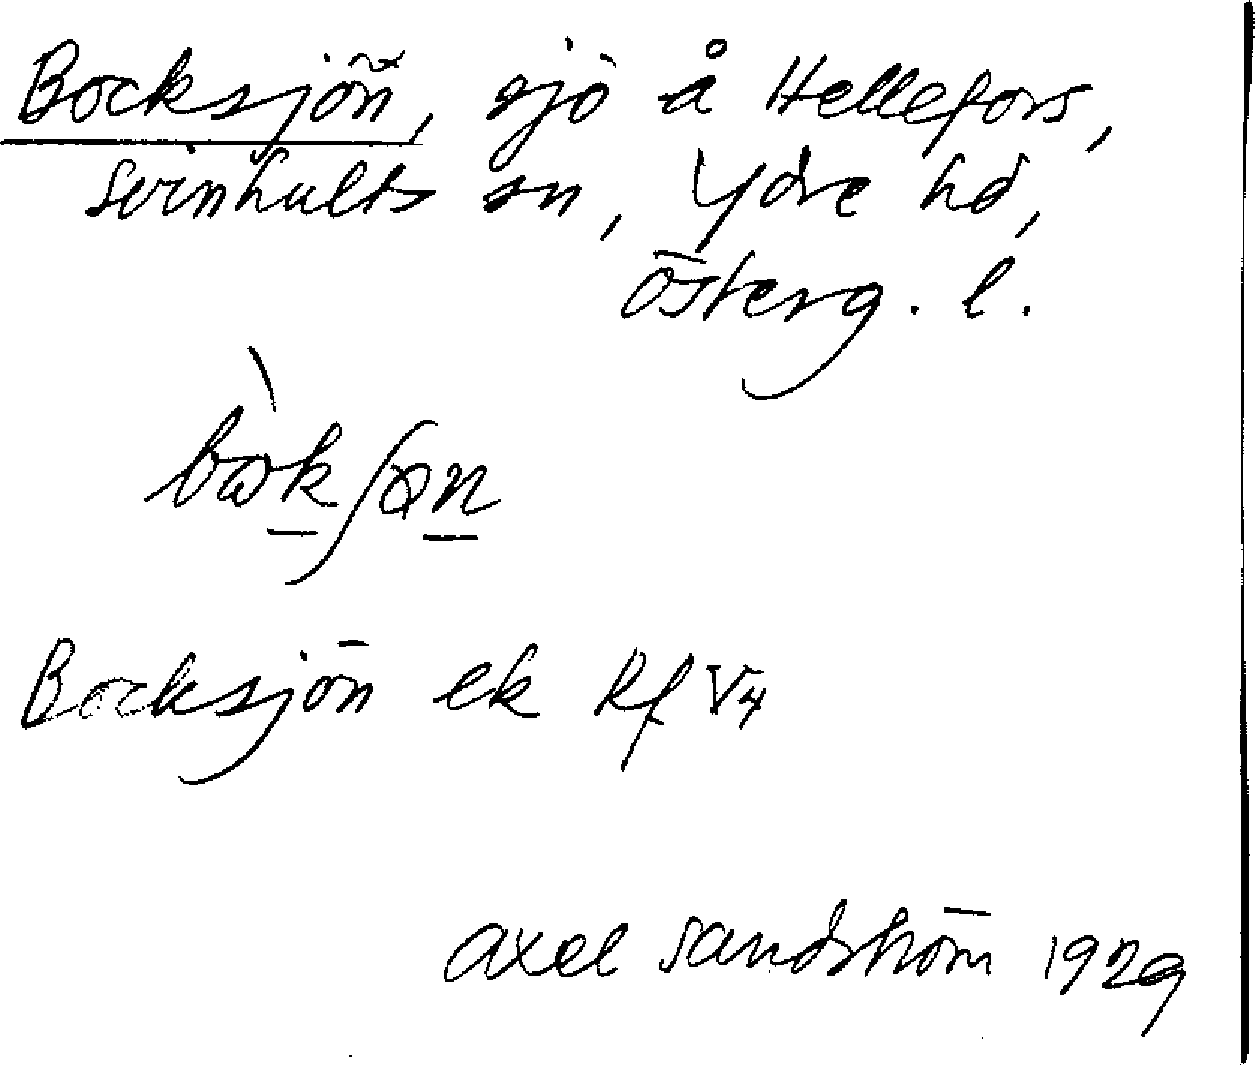 Bocksjön, sjö å Hellefors,
Svinhults sn, Ydre hd,
Österg. l.
Bocksjön ek Rf V4
Axel Sandström 1929